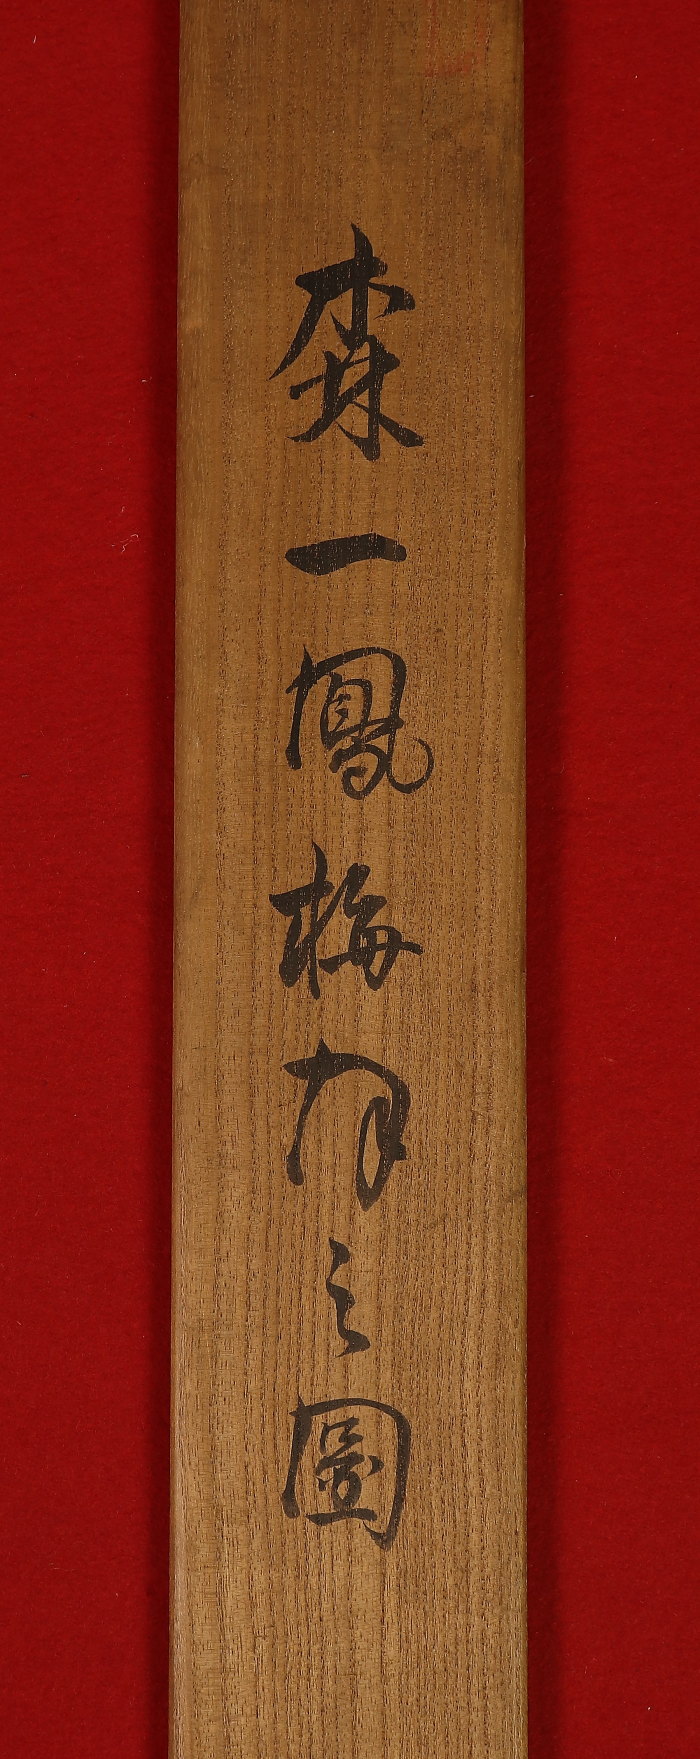 森一鳳梅之圖